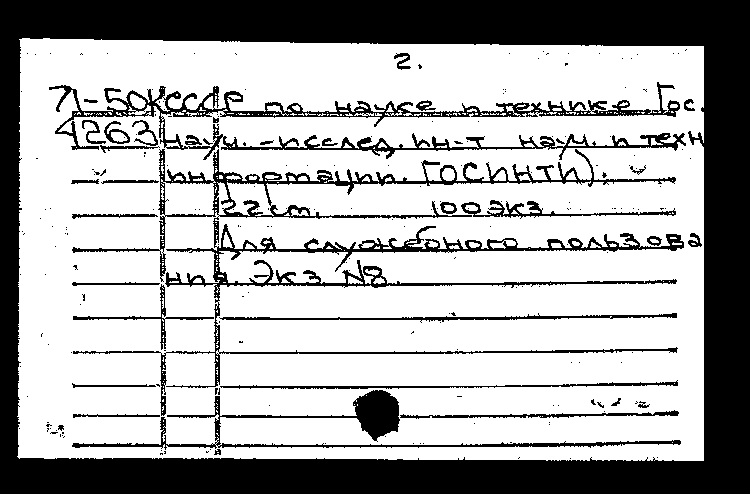 2.
71-50КСССР по науке и технике. Гос.
4263 науч.-исслед. ин-т науч. и техн
информации. ГОСИНТИ).
22 ст. 100 экз.
Для служебного пользова
ния. Экз №8.